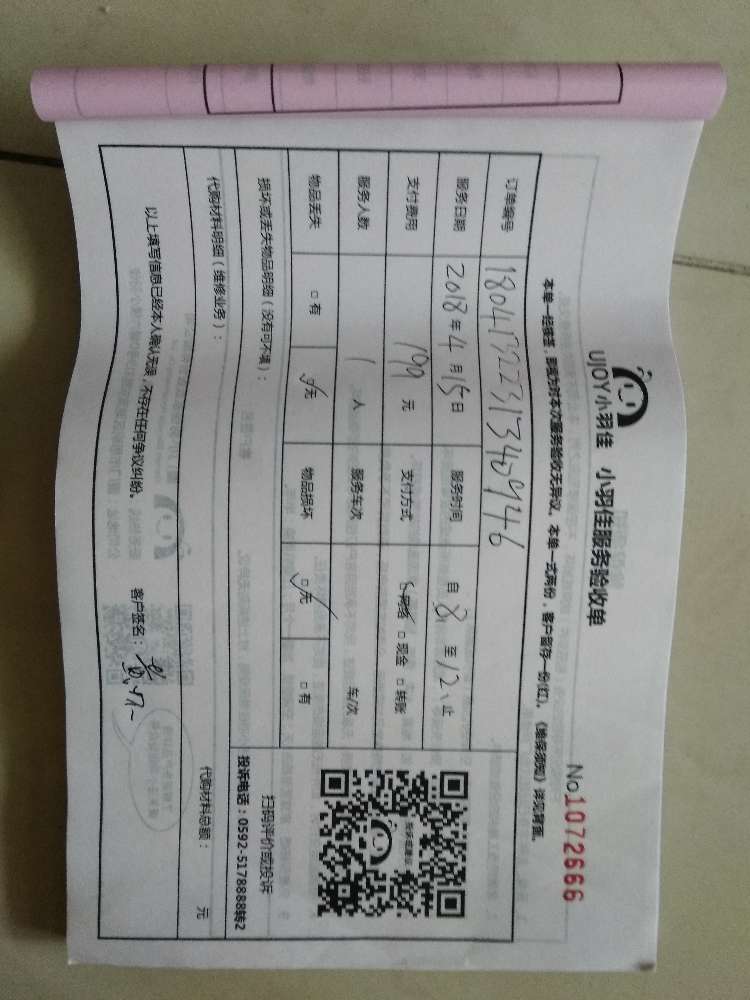 UJOY小羽佳 小羽佳服务验收单
No 1072666
本单一经签签，即视为对本次服务验收无异议。本单一式两份，客户留存一份(红)。《维保须知》详见背面。
订单编号
服务日期 2018年4月15日 服务时间 自8至12止
支付费用 199元 支付方式 ☑网络 □现金 □转账
服务人数 1人 服务车次 车/次
物品丢失 □有 ☑无 物品损坏 ☑无 □有
扫码评价或投诉
投诉电话：0592-5178888转2
损坏或丢失物品明细（没有可不填）：
代购材料明细（维修业务）：
代购材料总额： 元
以上填写信息已经本人确认无误，不存在任何争议纠纷。 客户签名：